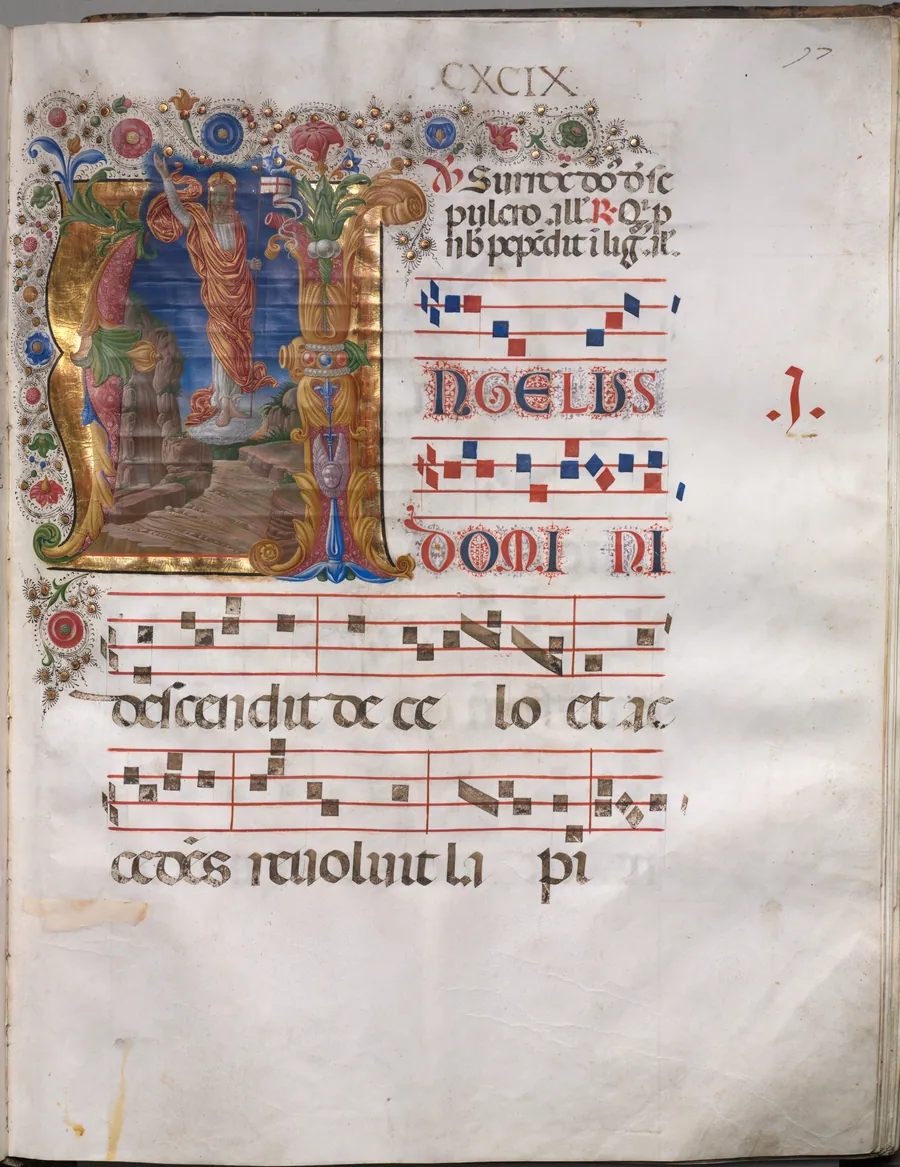 CXCIX
℣ Surrexit dn̄s de se
pulcro all'. ℟. Qui p
nb̄ pepēdit ī lig. all.
ANGELUS
.I.
DOMI NI
descendit de ce lo et ac
cedēs revolvit la pi